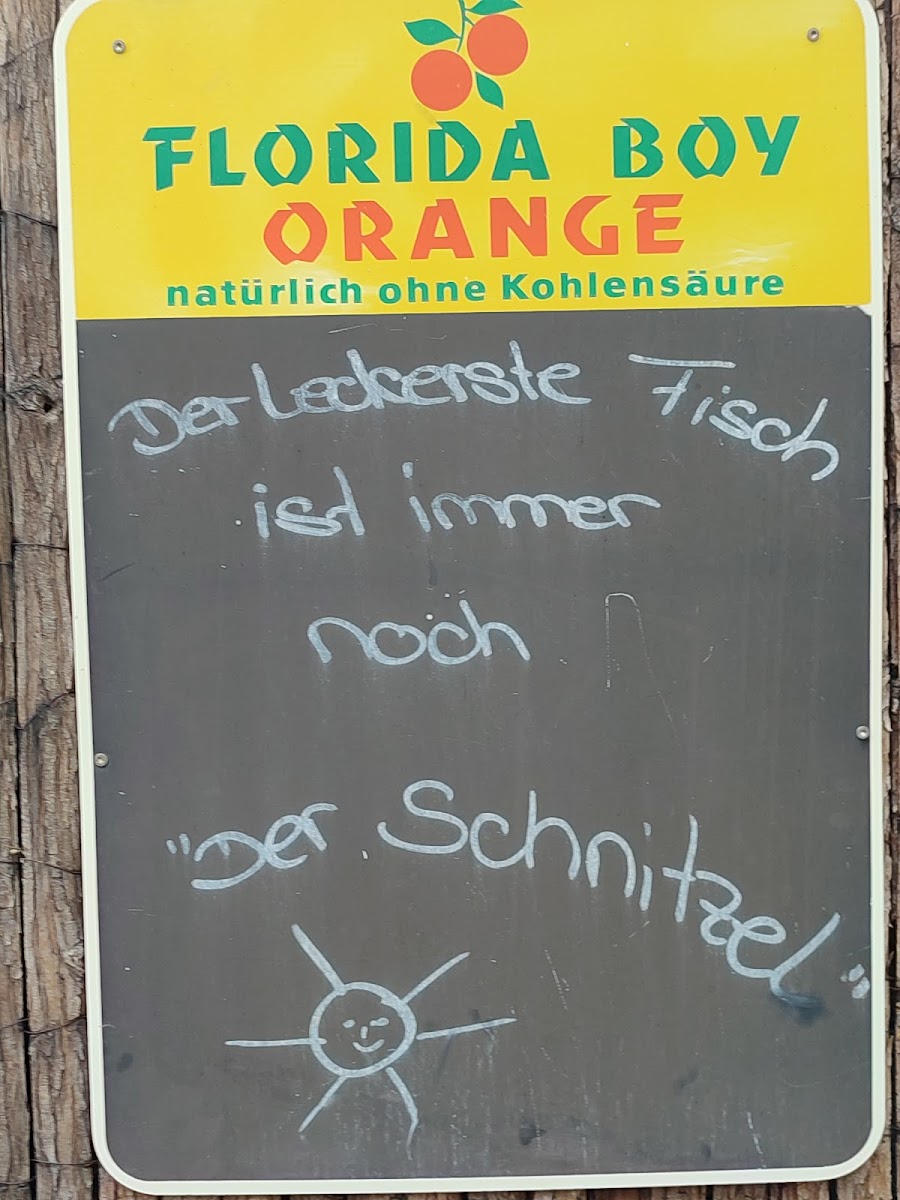 FLORIDA BOY
ORANGE
natürlich ohne Kohlensäure
Der Leckerste Fisch
ist immer
noch
"Der Schnitzel"